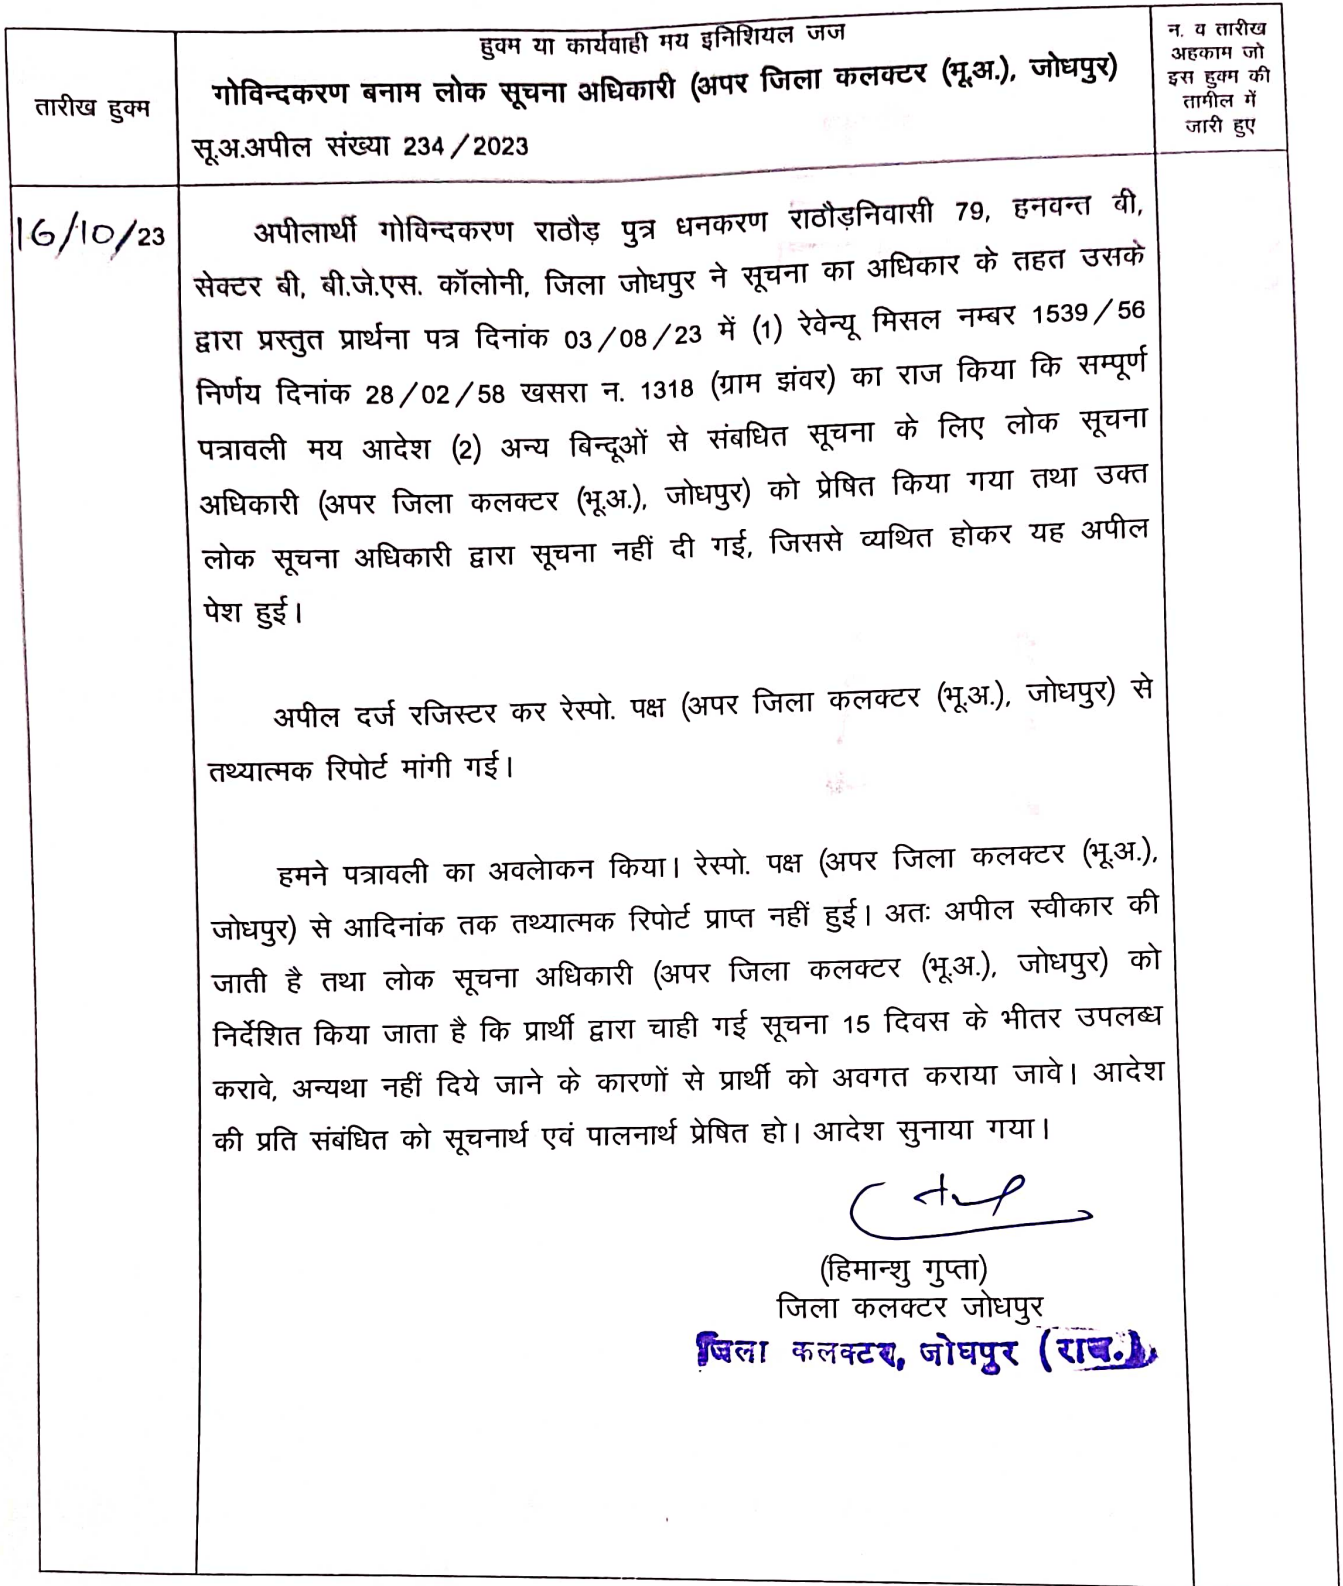 हुक्म या कार्यवाही मय इनिशियल जज
गोविन्दकरण बनाम लोक सूचना अधिकारी (अपर जिला कलक्टर (भू.अ.), जोधपुर)
सू.अ.अपील संख्या 234/2023
तारीख हुक्म
न. व तारीख
अहकाम जो
इस हुक्म की
तामील में
जारी हुए
16/10/23
अपीलार्थी गोविन्दकरण राठौड़ पुत्र धनकरण राठौड़निवासी 79, हनवन्त बी,
सेक्टर बी, बी.जे.एस. कॉलोनी, जिला जोधपुर ने सूचना का अधिकार के तहत उसके
द्वारा प्रस्तुत प्रार्थना पत्र दिनांक 03/08/23 में (1) रेवेन्यू मिसल नम्बर 1539/56
निर्णय दिनांक 28/02/58 खसरा न. 1318 (ग्राम झंवर) का राज किया कि सम्पूर्ण
पत्रावली मय आदेश (2) अन्य बिन्दूओं से संबधित सूचना के लिए लोक सूचना
अधिकारी (अपर जिला कलक्टर (भू.अ.), जोधपुर) को प्रेषित किया गया तथा उक्त
लोक सूचना अधिकारी द्वारा सूचना नहीं दी गई, जिससे व्यथित होकर यह अपील
पेश हुई।
अपील दर्ज रजिस्टर कर रेस्पो. पक्ष (अपर जिला कलक्टर (भू.अ.), जोधपुर) से
तथ्यात्मक रिपोर्ट मांगी गई।
हमने पत्रावली का अवलेाकन किया। रेस्पो. पक्ष (अपर जिला कलक्टर (भू.अ.),
जोधपुर) से आदिनांक तक तथ्यात्मक रिपोर्ट प्राप्त नहीं हुई। अतः अपील स्वीकार की
जाती है तथा लोक सूचना अधिकारी (अपर जिला कलक्टर (भू.अ.), जोधपुर) को
निर्देशित किया जाता है कि प्रार्थी द्वारा चाही गई सूचना 15 दिवस के भीतर उपलब्ध
करावे, अन्यथा नहीं दिये जाने के कारणों से प्रार्थी को अवगत कराया जावे। आदेश
की प्रति संबंधित को सूचनार्थ एवं पालनार्थ प्रेषित हो। आदेश सुनाया गया।
(हिमान्शु गुप्ता)
जिला कलक्टर जोधपुर
जिला कलक्टर, जोधपुर (राज.)